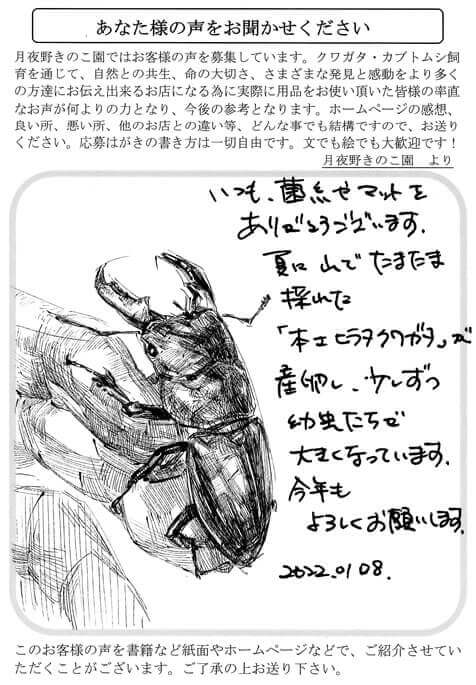 あなた様の声をお聞かせください
月夜野きのこ園ではお客様の声を募集しています。クワガタ・カブトムシ飼
育を通じて、自然との共生、命の大切さ、さまざまな発見と感動をより多く
の方達にお伝え出来るお店になる為に実際に用品をお使い頂いた皆様の率直
なお声が何よりの力となり、今後の参考となります。ホームページの感想、
良い所、悪い所、他のお店との違い等、どんな事でも結構ですので、お送り
ください。応募はがきの書き方は一切自由です。文でも絵でも大歓迎です！
月夜野きのこ園　より
いつも、菌糸やマットを
ありがとうございます.
夏に山でたまたま
採れた
「本土ヒラタクワガタ」が
産卵し、少しずつ
幼虫たちが
大きくなっています.
今年も
よろしくお願いします.
2022.01 08.
このお客様の声を書籍など紙面やホームページなどで、ご紹介させてい
ただくことがございます。ご了承の上お送り下さい。